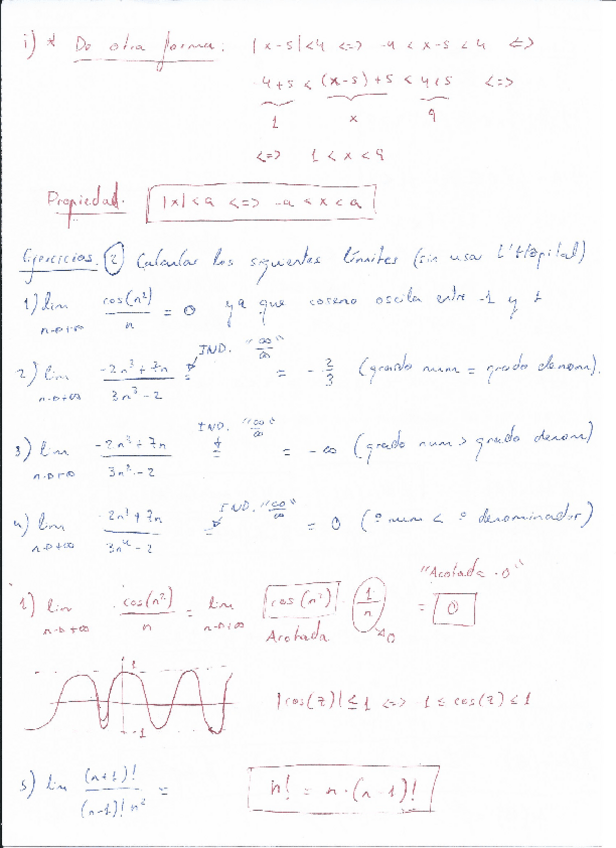 i) * De otra forma: |x-5|<4 <=> -4 < x-5 < 4 <=>
-4+5 < (x-5)+5 < 4+5 <=>
1 x 9
<=> 1 < x < 9
Propiedad. |x|<a <=> -a < x < a
Ejercicios. 2) Calcular los siguientes límites (sin usar L'Hôpital)
1) lim n→+∞ cos(n²)/n = 0 ya que coseno oscila entre -1 y 1
2) lim n→+∞ (-2n³+7n)/(3n³-2) = IND. "∞/∞" = -2/3 (grado num = grado denom).
3) lim n→+∞ (-2n³+7n)/(3n²-2) = IND. "∞/∞" = -∞ (grado num > grado denom)
4) lim n→+∞ (-2n³+7n)/(3n⁴-2) = IND. "∞/∞" = 0 (º num < º denominador)
1) lim n→+∞ cos(n²)/n = lim n→+∞ cos(n²) · 1/n = 0
"Acotada · 0"
Acotada →0
1
-1
|cos(z)| ≤ 1 <=> -1 ≤ cos(z) ≤ 1
5) lim (n+1)!/((n-1)! n²) = n! = n·(n-1)!